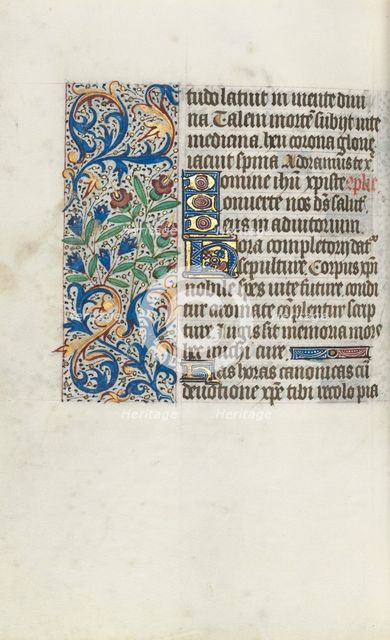 tudo latuit in mente diui
na Talem morte subijt vite
medicina heu corona glorie
iacuit spina Adoramus te x
Domine ihu xpiste
Conuerte nos ds salut
Deus in adiutorium
Hora completorij dat
sepulture Corpus xpi
nobile spes vite future condi
tur aromate complentur scrip
ture Iugis sit memoria mors
hec michi cure
Has horas canonicas cu
deuotione xpe tibi recolo pia
Heritage
Heritage
Heritage